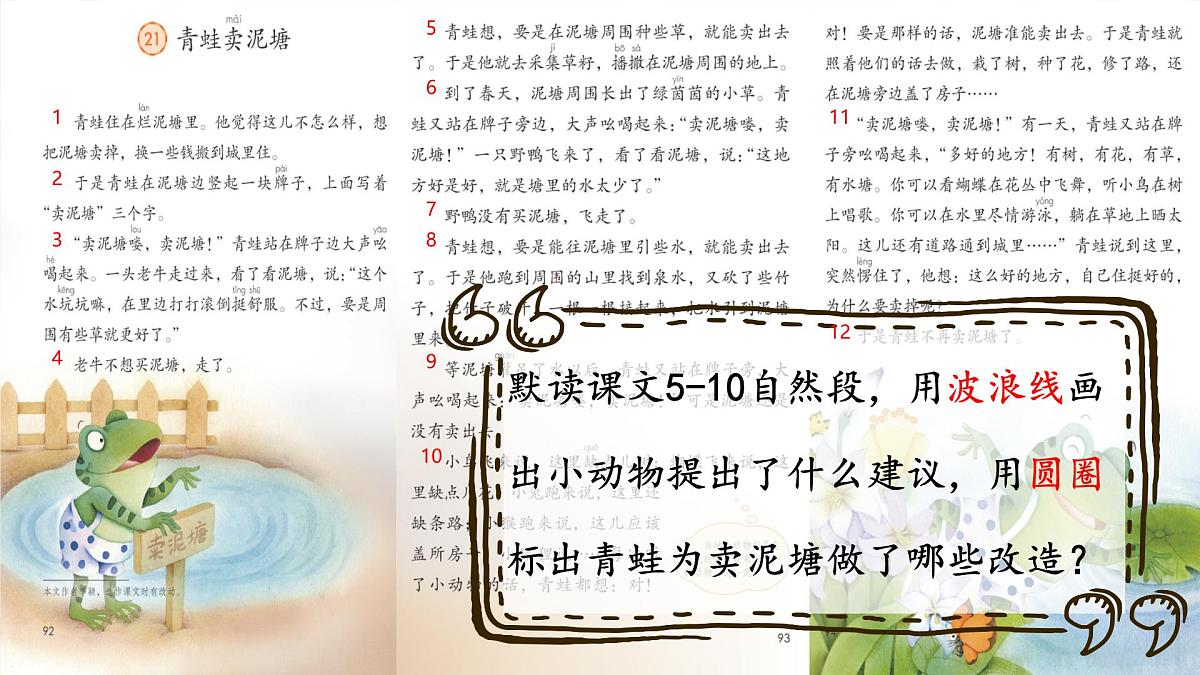 21 青蛙卖泥塘
mài
làn
1 青蛙住在烂泥塘里。他觉得这儿不怎么样，想
把泥塘卖掉，换一些钱搬到城里住。
pái
2 于是青蛙在泥塘边竖起一块牌子，上面写着
“卖泥塘”三个字。
lou yāo
3 “卖泥塘喽，卖泥塘！”青蛙站在牌子边大声吆
hè
喝起来。一头老牛走过来，看了看泥塘，说：“这个
kēng tǐng shū
水坑坑嘛，在里边打打滚倒挺舒服。不过，要是周
围有些草就更好了。”
4 老牛不想买泥塘，走了。
卖泥塘
本文作者李颖，选作课文时有改动。
92
5 青蛙想，要是在泥塘周围种些草，就能卖出去
jí bō sǎ
了。于是他就去采集草籽，播撒在泥塘周围的地上。
yīn
6 到了春天，泥塘周围长出了绿茵茵的小草。青
蛙又站在牌子旁边，大声吆喝起来：“卖泥塘喽，卖
泥塘！”一只野鸭飞来了，看了看泥塘，说：“这地
方好是好，就是塘里的水太少了。”
7 野鸭没有买泥塘，飞走了。
8 青蛙想，要是能往泥塘里引些水，就能卖出去
了。于是他跑到周围的山里找到泉水，又砍了些竹
子，把竹子破开，一根一根接起来，把水引到泥塘
里来
9 等泥塘灌足了水以后，青蛙又站在牌子旁，大
声吆喝起来：“卖泥塘喽，卖泥塘！”可是泥塘还是
没有卖出去
quē
10 小鸟飞来说，这里缺点儿树；蝴蝶飞来说，这
里缺点儿花；小兔跑来说，这里还
缺条路；小猴跑来说，这儿应该
盖所房子
了小动物的话，青蛙都想：对！
93
对！要是那样的话，泥塘准能卖出去。于是青蛙就
照着他们的话去做，栽了树，种了花，修了路，还
在泥塘旁边盖了房子……
11 “卖泥塘喽，卖泥塘！”有一天，青蛙又站在牌
子旁吆喝起来，“多好的地方！有树，有花，有草，
有水塘。你可以看蝴蝶在花丛中飞舞，听小鸟在树
yǒng
上唱歌。你可以在水里尽情游泳，躺在草地上晒太
阳。这儿还有道路通到城里……”青蛙说到这里，
lèng
突然愣住了，他想：这么好的地方，自己住挺好的，
为什么要卖掉呢？
12 于是青蛙不再卖泥塘了。
默读课文5-10自然段，用波浪线画
出小动物提出了什么建议，用圆圈
标出青蛙为卖泥塘做了哪些改造？